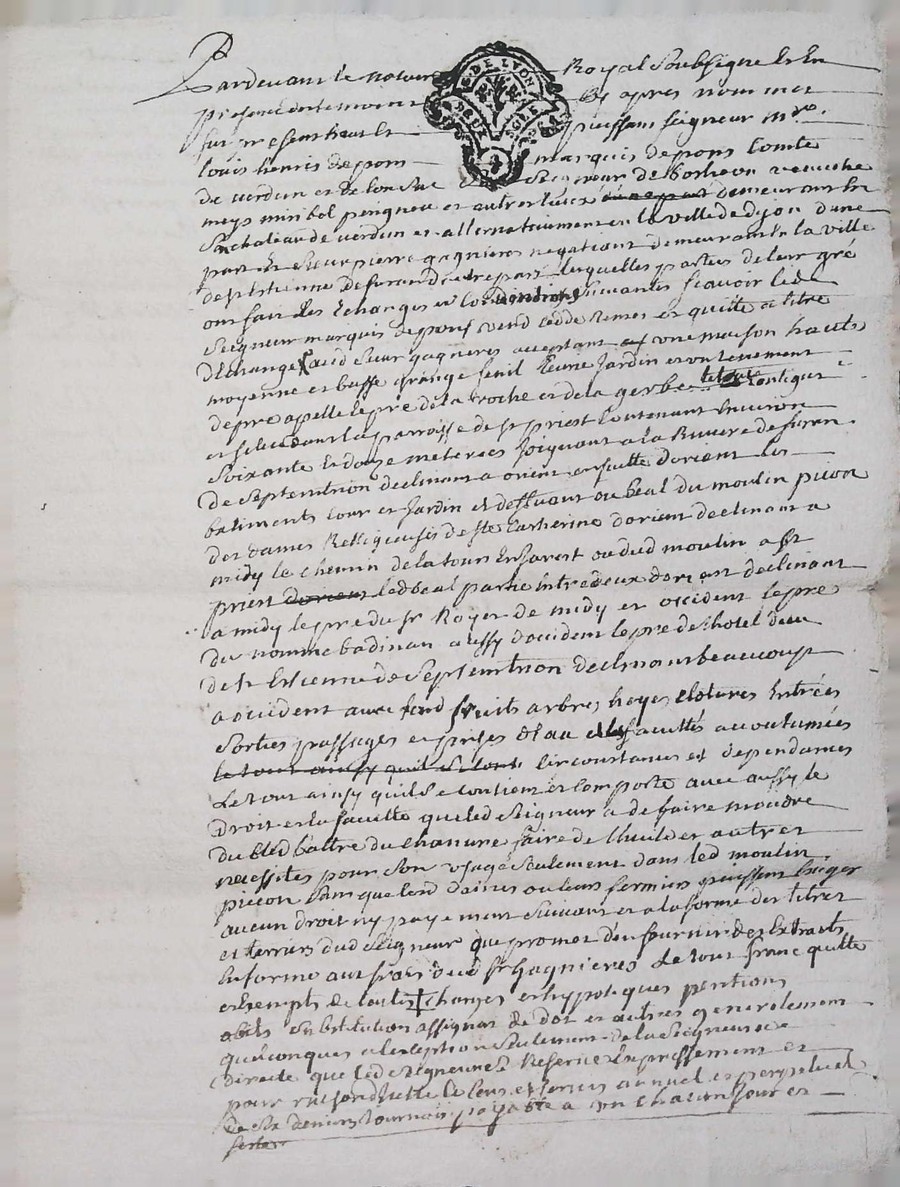 Pardevant le notaire Royal Soubsigné et En
presence des temoins cy apres nommes
fut present haut et puissant seigneur mre
DE LYON
louis henris de pons marquis de pons Comte
de verdun et de lonsac Seigneur de
meys miribel perigneu et autres lieux demeurant En
Son chateau de verdun et alternativement en la ville de dijon d'une
part Et Sieur pierre gagnieres negotiant demeurant En la ville
de st Estienne de furan d'autre part lesquelles parties de leur gré
ont fait les Echanges et Conventions Suivantes scavoir led
Seigneur marquis de pons vend cedde Remet et quitte a titre
d'Echange aud Sieur gagnieres acceptant une maison haute
moyenne et basse grange fenil Ecurie Jardin et un tenement
de pré appellé le pré de la roche et de la gerbe le tout Contigut
et scitué dans la parroisse de st priest Contenant Environ
Soixante et douze meterées Joignant a la Riviere de furan
de Septemtrion declinant a orient ensuitte d'orient les
batiments cour et Jardin et deffuant ou beal du moulin picon
des dames Religieuses de Ste Catherine d'orient declinant a
midy le chemin de la tour En Javest ou dud moulin a st
priest d'orient led beal partie Entre deux d'orient declinant
a midy le pré du Sr Royer de midy et occident le pré
du nommé badinan aussy d'occident le pré de l'hotel dieu
de st Estienne de Septemtrion declinant beaucoup
a occident avec fond fruits arbres hayes Clotures Entrées
Sorties passages et prises d'Eau facultés accoutumées
le tout ainsy quil se Circonstances et dependances
Le tout ainsy quil se Contient et Comporte avec aussy le
droit et la faculté que led Seigneur a de faire moudre
du bled battre du chanvre faire de l'huile et autres
necessités pour son usage Seulement dans led moulin
picon Sans que lesd dames ou leurs fermiers puissent Exiger
aucun droit ny payement Suivant et a la forme des titres
et terriers dud Seigneur que promet d'en fournir des Extraits
En forme aux frais dud Sr gagnieres Le tout franc quitte
et Exempt de toutes charges et hypoteques pentions
Substitution assignat de dot et autres generalement
quelconques a l'exception Seulement de la Seigneurie
directe que led Seigneur Reserve Expressement et
pour raison d'icelle le Cens et Servis annuel et perpetuel
de Six deniers tournois payable a un chacun Jour et
feste